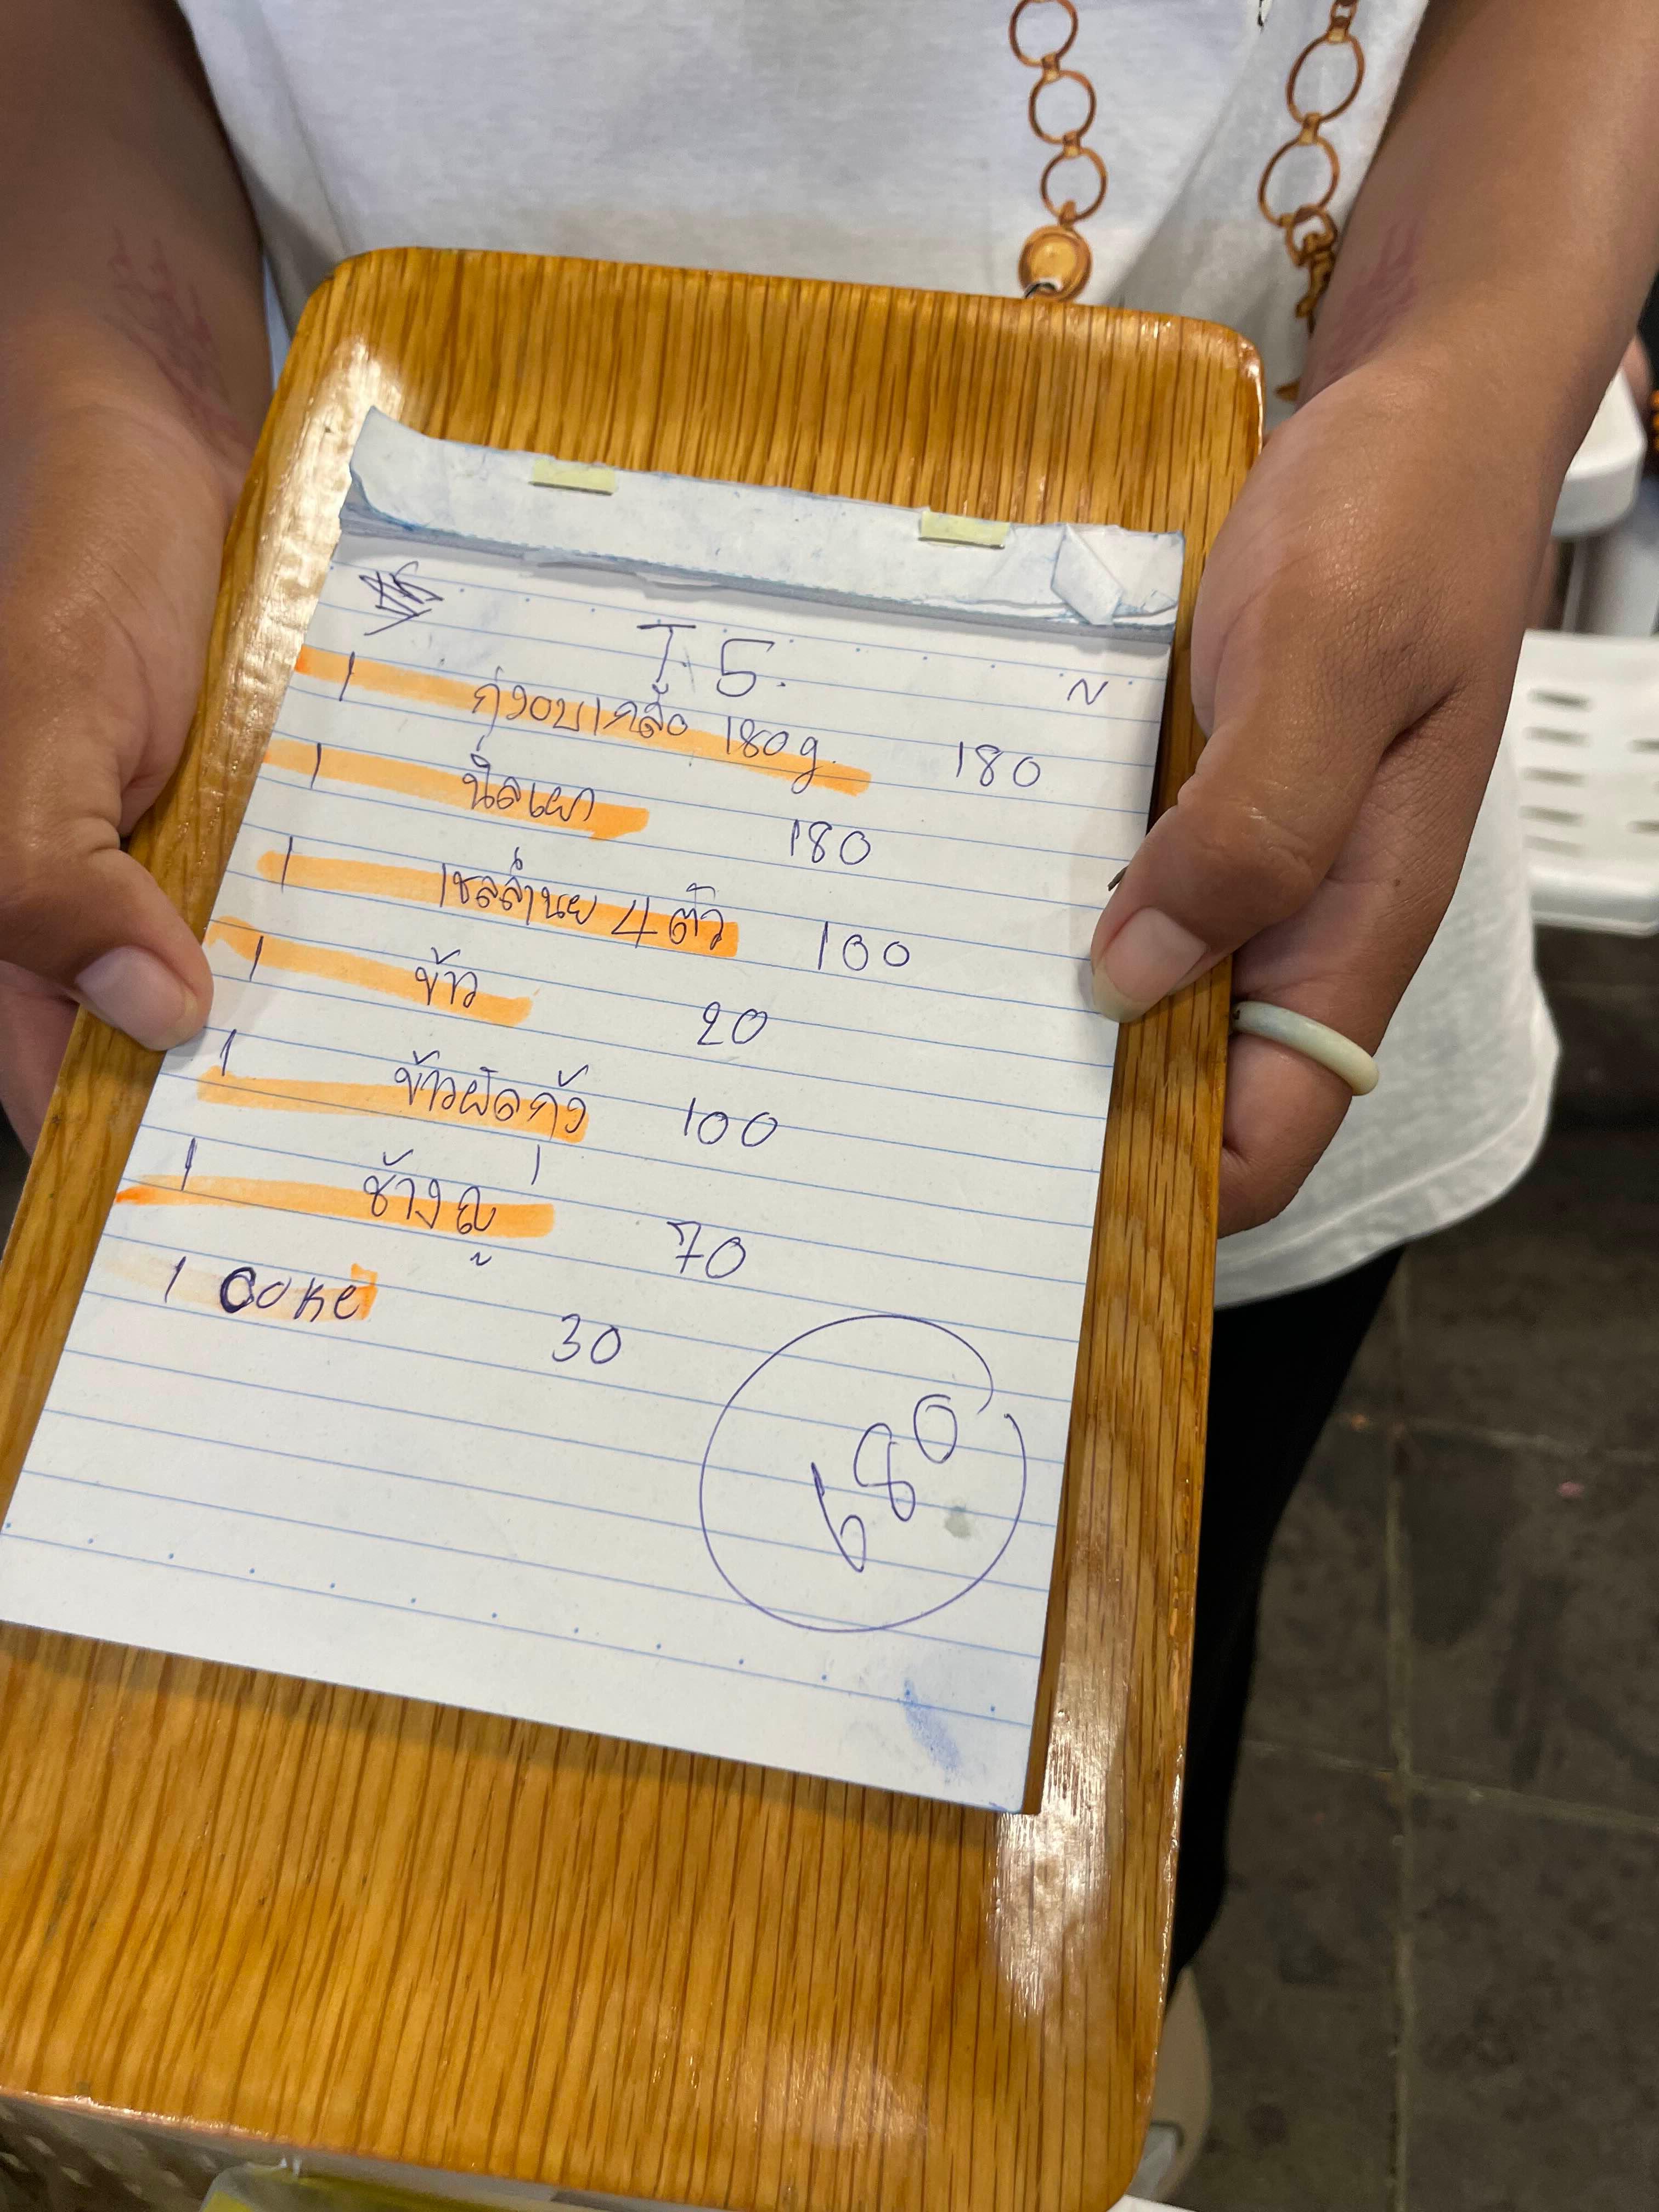 T. 5. N
1 กุ้งอบเกลือ 180g. 180
1 นิลเผา 180
1 เชลล์เนย 4 ตัว 100
1 ข้าว 20
1 ข้าวผัดกุ้ง 100
1 ช้าง ญ 70
1 coke 30
680